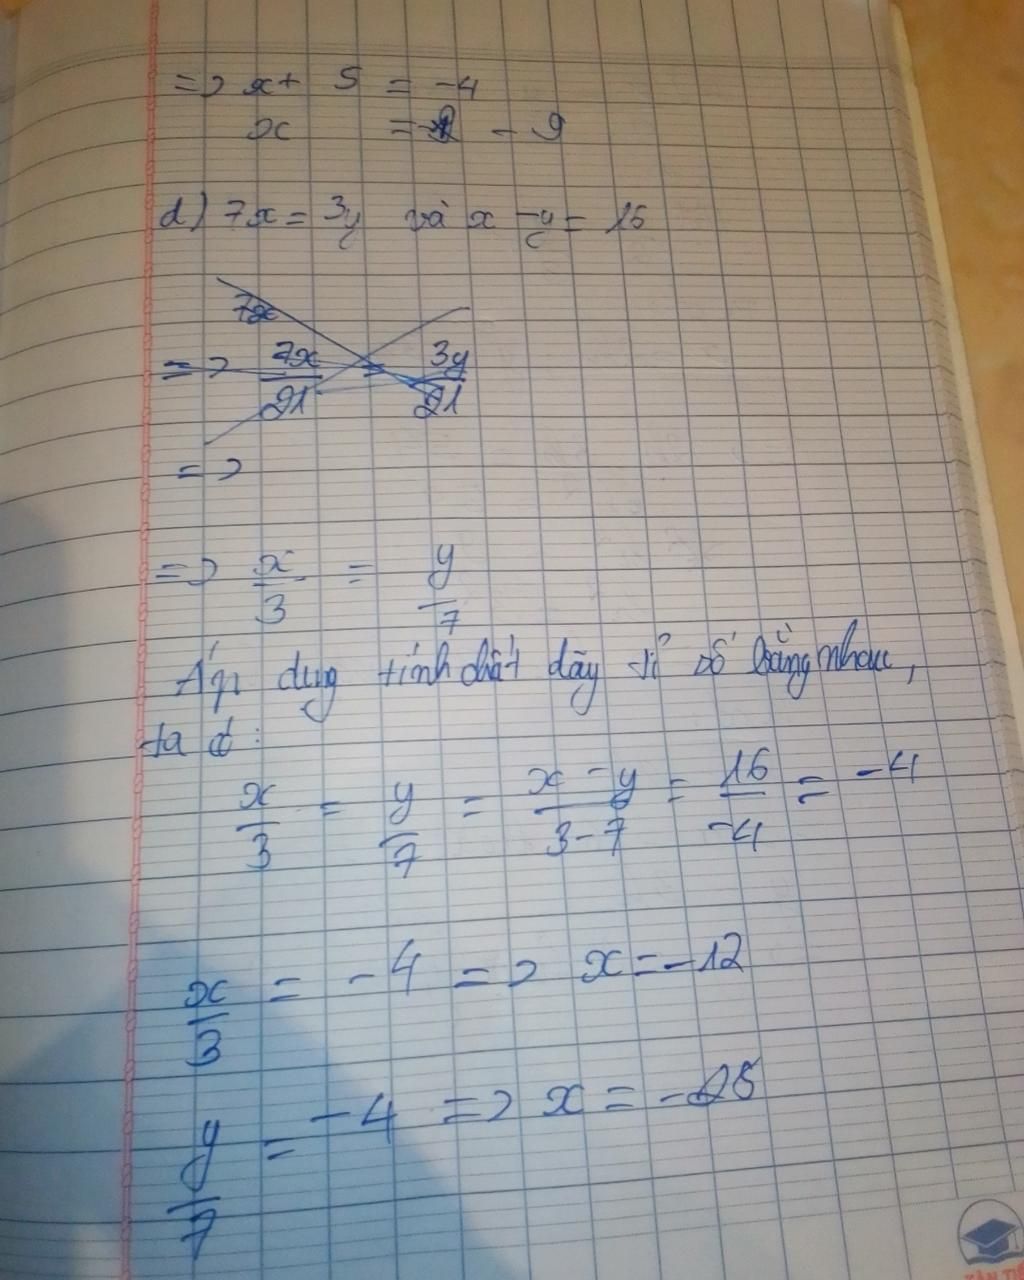 => x + 5 = -4
x = - 9
d) 7x = 3y và x - y = 16
7x
=> 7x/21 = 3y/21
=>
=> x/3 = y/7
Áp dụng tính chất dãy tỉ số bằng nhau,
ta có:
x/3 = y/7 = x - y/3 - 7 = 16/-4 = -4
x/3 = -4 => x = -12
y/7 = -4 => x = -28